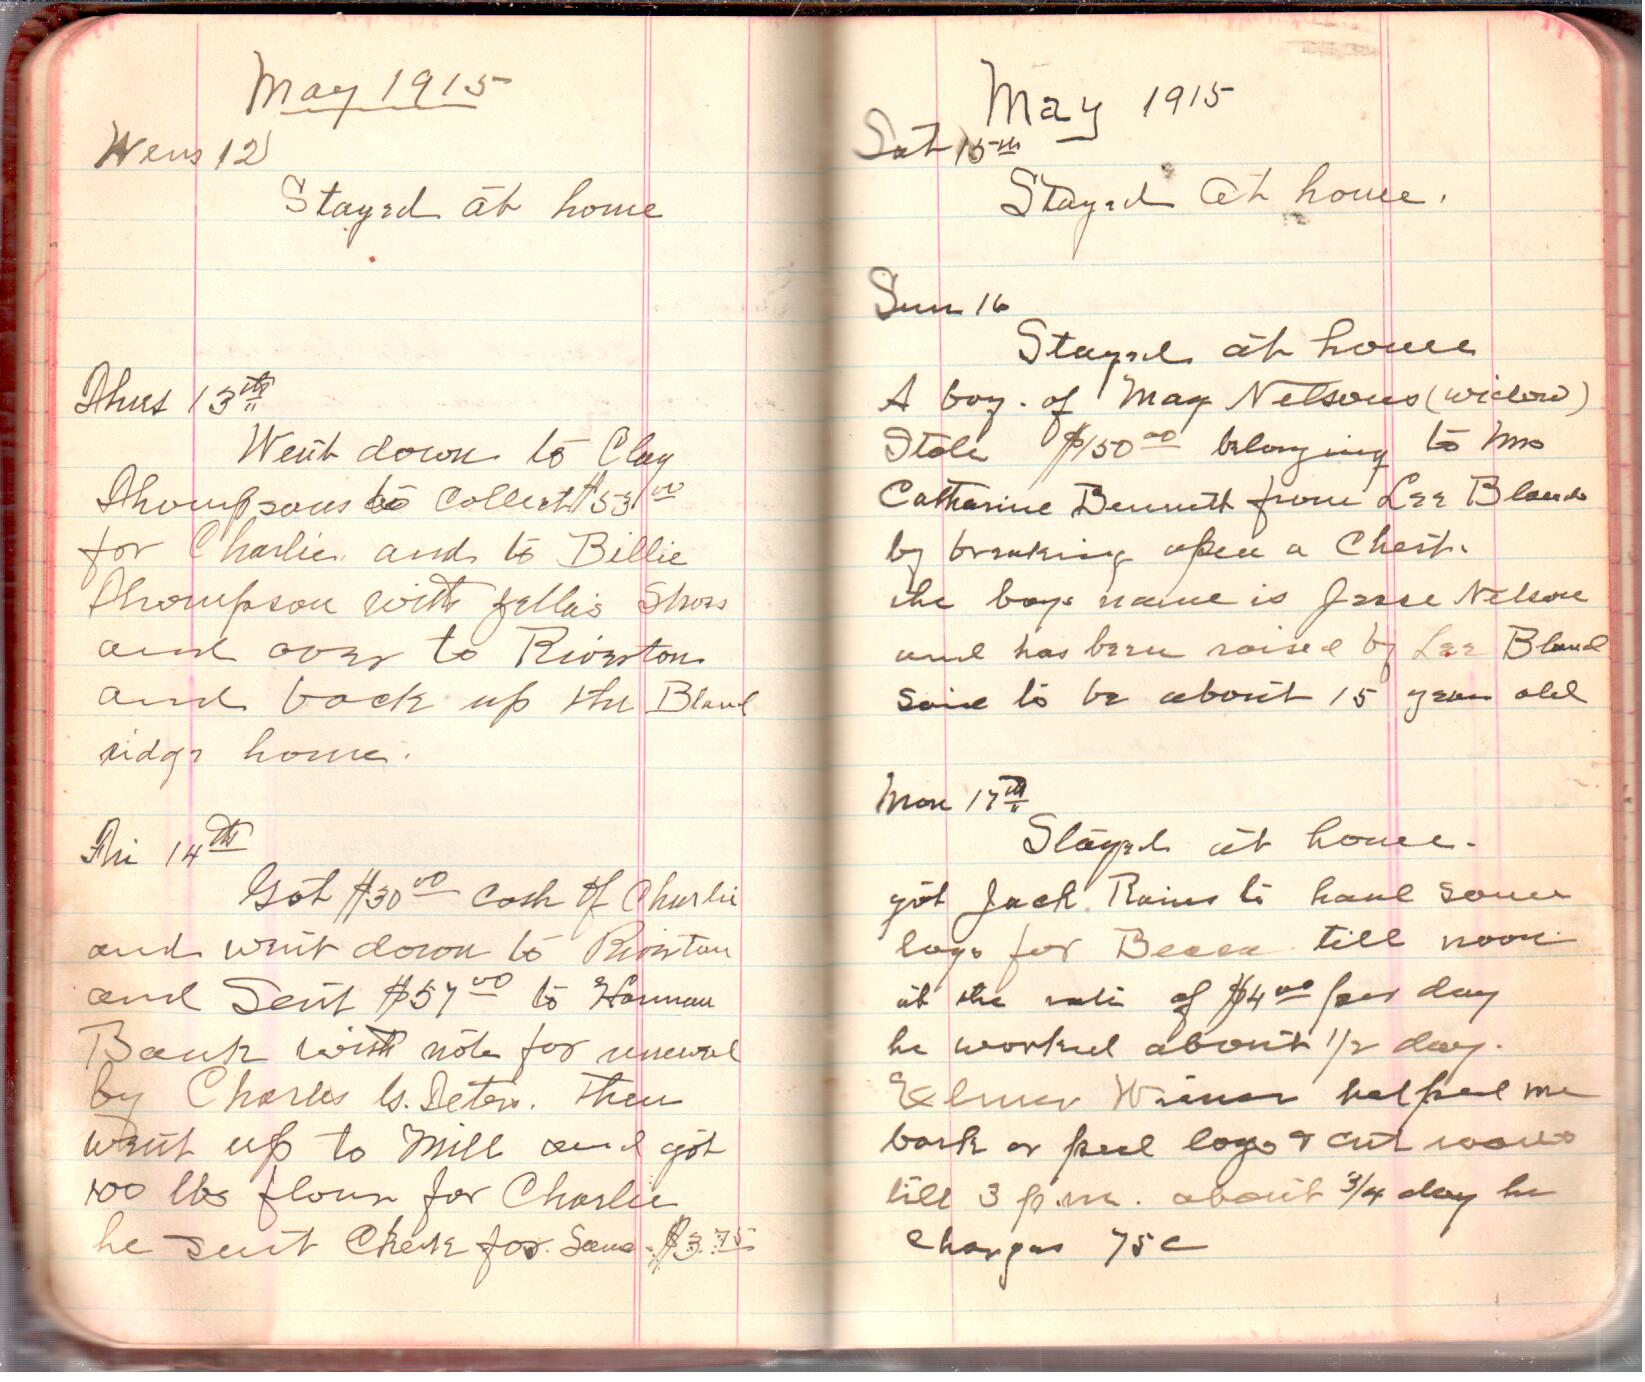 May 1915
Wens 12
Stayed at home
Thurs 13th
Went down to Clay
Thompsons to collect $53.00
for Charlie and to Billie
Thompson with Shoes
and over to Riverton
and back up the Bland
ridge home.
Fri 14th
Got $30.00 cash of Charlie
and went down to Riverton
and Sent $57.00 to Harman
Bank with note for renewal
by Charles then
went up to Mill and got
100 lbs flour for Charlie
he sent Check for Same $3.75
May 1915
Sat 15th
Stayed at home.
Sun 16
Stayed at home
A boy of May Nelsons (widow)
Stole $150.00 belonging to Mrs
Catharine Bennett from Lee Blands
by breaking open a Chest.
the boys name is Jesse Nelson
and has been raised by Lee Bland
said to be about 15 years old
Mon 17th
Stayed at home.
got Jack Rains to haul some
logs for till noon
at the rate of $4.00 per day
he worked about 1/2 day.
Elmer helped me
bark or peel logs & cut
till 3 p.m. about 3/4 day he
charges 75c